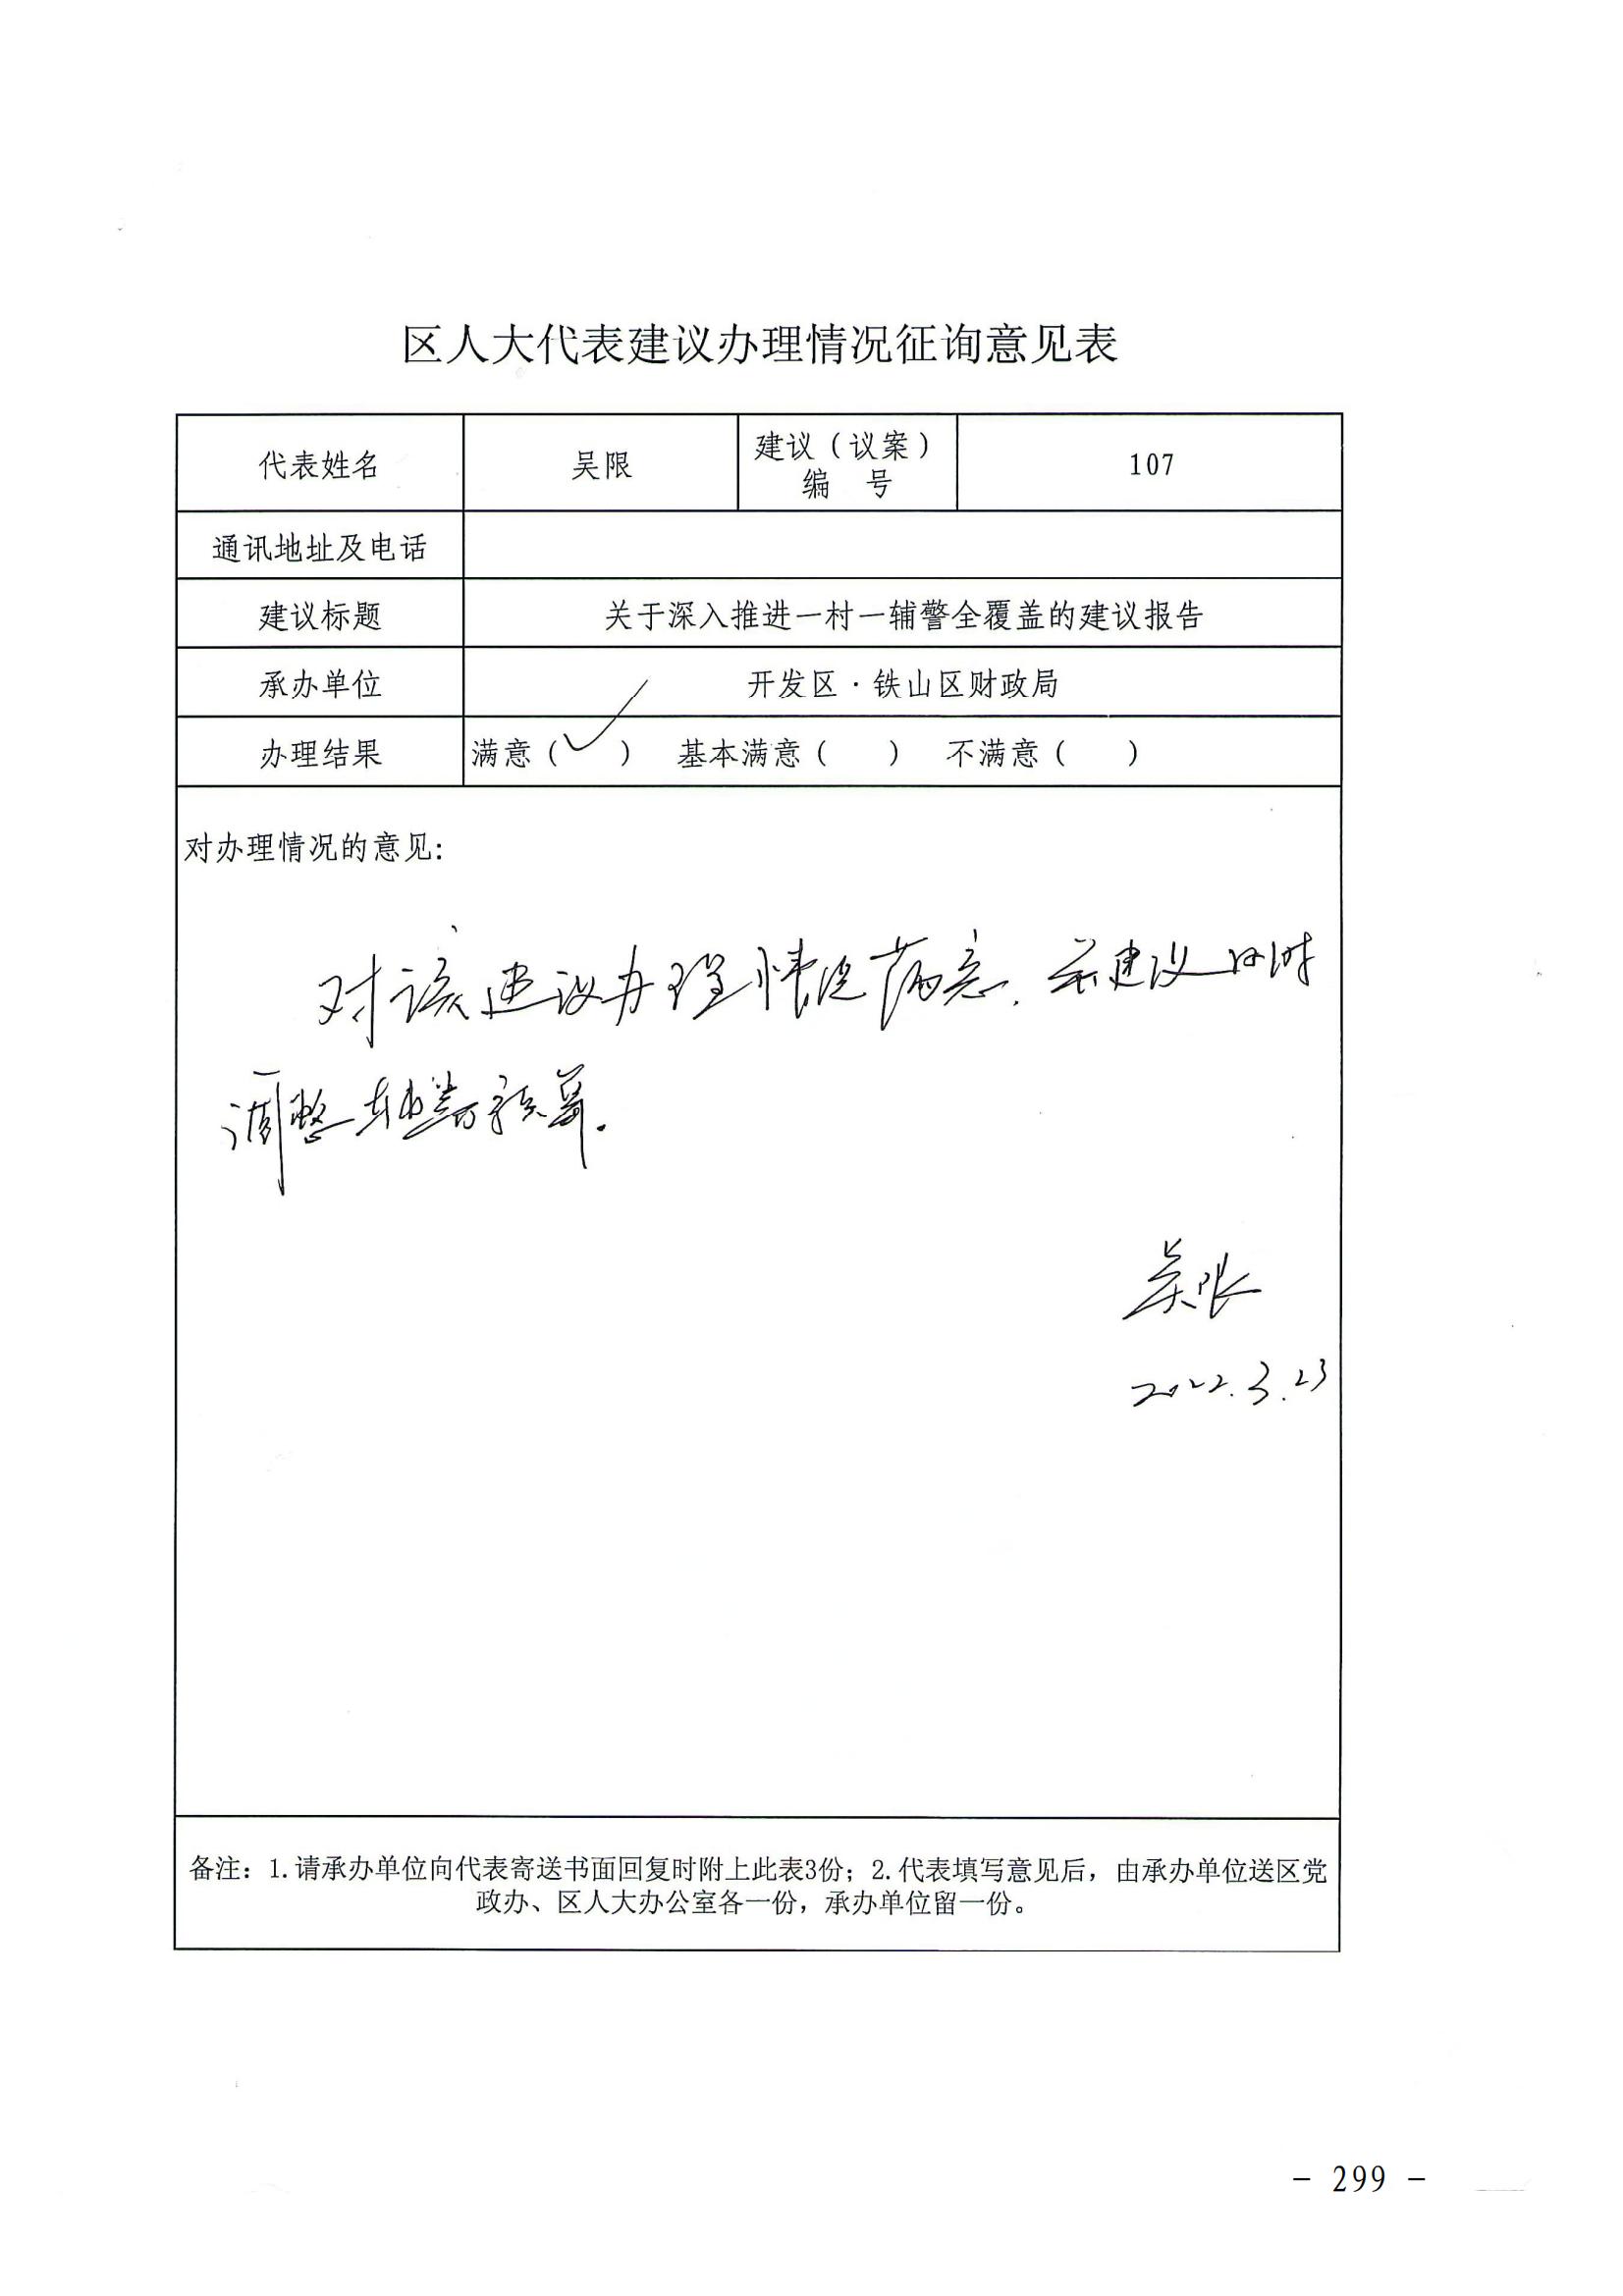 区人大代表建议办理情况征询意见表
代表姓名 吴限 建议（议案）编 号 107
通讯地址及电话
建议标题 关于深入推进一村一辅警全覆盖的建议报告
承办单位 开发区·铁山区财政局
办理结果 满意（✓） 基本满意（ ） 不满意（ ）
对办理情况的意见:
对该建议办理情况满意，并建议同时
调整辅警预算。
吴限
2022.3.23
备注：1.请承办单位向代表寄送书面回复时附上此表3份；2.代表填写意见后，由承办单位送区党
政办、区人大办公室各一份，承办单位留一份。
- 299 -